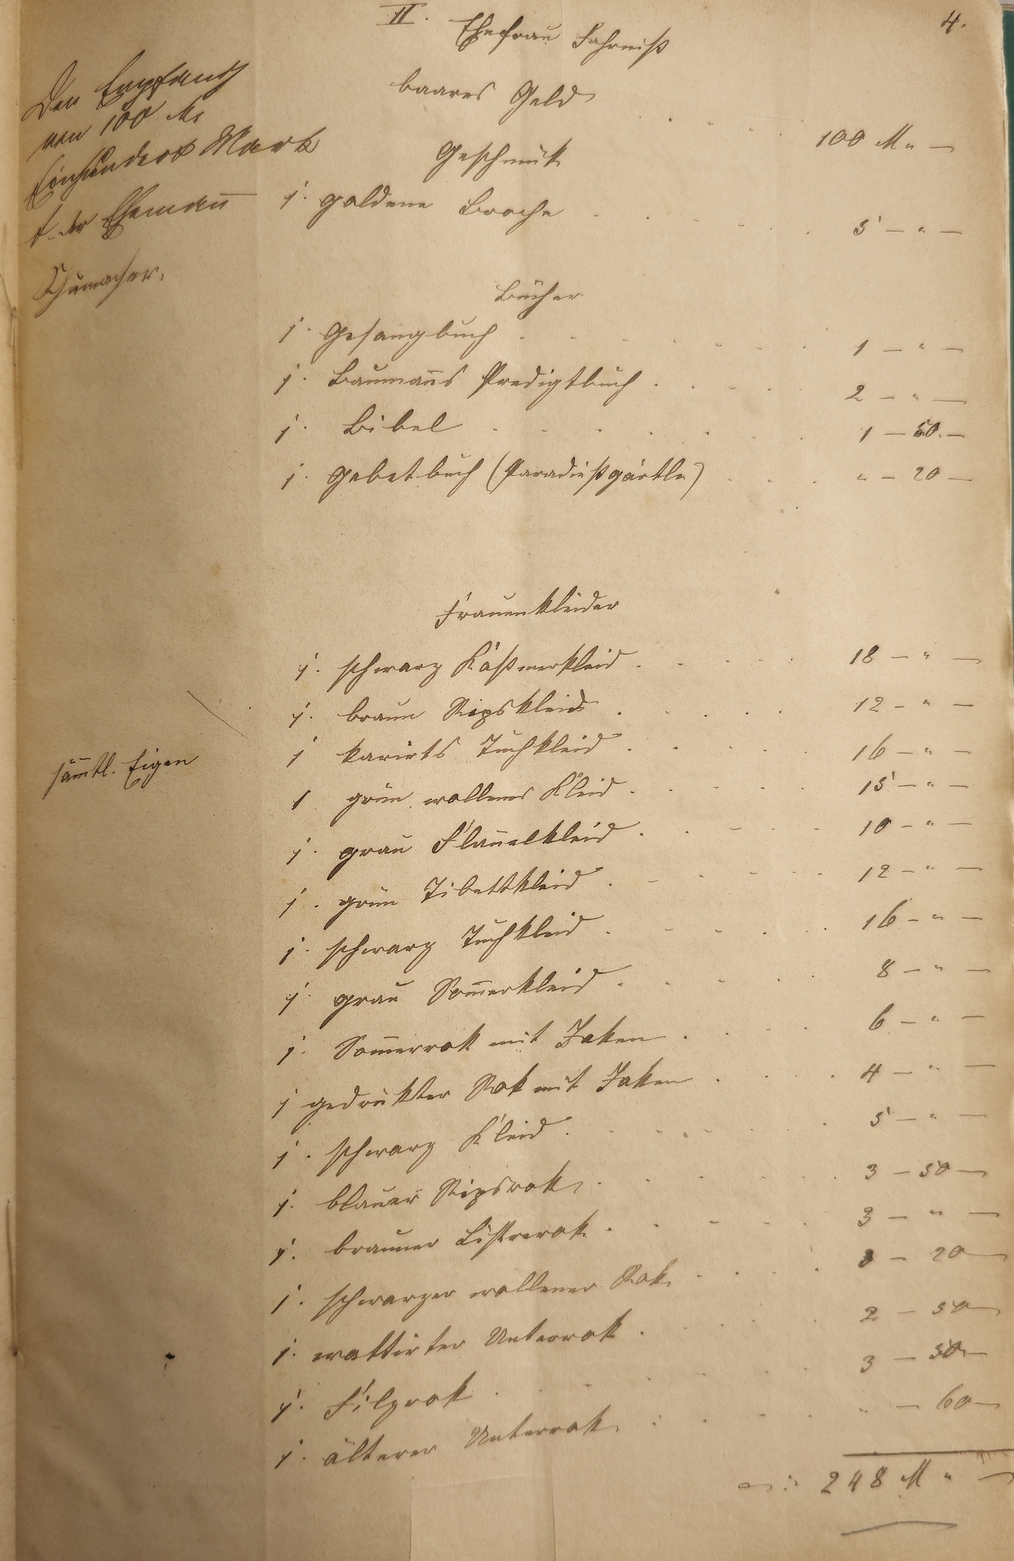 4.
II. Ehefrau Fahrniß
baares Geld
100 M. " —
Den Empfang
von 100 M.
Einhundert Mark
t. der Ehemann
Schumacher.
Geschmuk
1. goldene Broche . . . . 5 — " —
Bücher
1. Gesangbuch . . . . 1 — " —
1. Baumanns Predigtbuch . . . . 2 — " —
1. Bibel . . . . 1 — 50. —
1. Gebetbuch (Paradießgärtle) . . . " — 20 —
Frauenkleider
1. schwarz Kaßmerkleid . . . . 18 — " —
1. braun Ripskleid . . . . 12 — " —
1 karirts Tuchkleid . . . . 16 — " —
sämtl. Eigen
1 grün wollenes Kleid . . . . 15 — " —
1. grau Flanelkleid . . . . 10 — " —
1. grün Tibettkleid . . . . 12 — " —
1. schwarz Tuchkleid . . . . 16 — " —
1. grau Somerkleid . . . . 8 — " —
1. Somerrok mit Jaken . . . . 6 — " —
1 gedrukter Rok mit Jaken . . . . 4 — " —
1. schwarz Kleid . . . . 5 — " —
1. blauer Ripsrok . . . . 3 — 50 —
1. brauner Listrerok . . . . 3 — " —
1. schwarzer wollener Rok . . . . — 20 —
1. wattirter Unterrok . . . . 2 — 50 —
1. Filzrok . . . . 3 — 50 —
1. älterer Unterrok . . . . " — 60 —
248 M " —